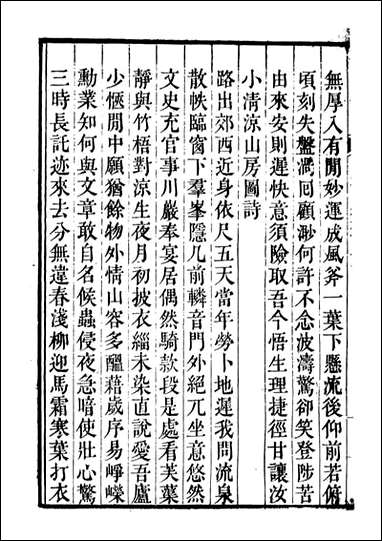 無厚入有閒妙運成風斧一葉下懸流後仰前若俯
頃刻失盤渦回顧渺何許不念波濤驚卻笑登陟苦
由來安則遲快意須險取吾今悟生理捷徑甘讓汝
小清涼山房圖詩
路出郊西近身依尺五天當年勞卜地遲我問流泉
散帙臨窗下羣峯隱几前轔音門外絕兀坐意悠然
文史充官事川嚴奉宴居偶然騎款段是處看芙蕖
靜與竹梧對涼生夜月初披衣緇未染直說愛吾廬
少愜閒中願猶餘物外情山容多醞藉歲序易崢嶸
勳業知何與文章敢自名候蟲侵夜急暗使壯心驚
三時長託迹來去分無違春淺柳迎馬霜寒葉打衣